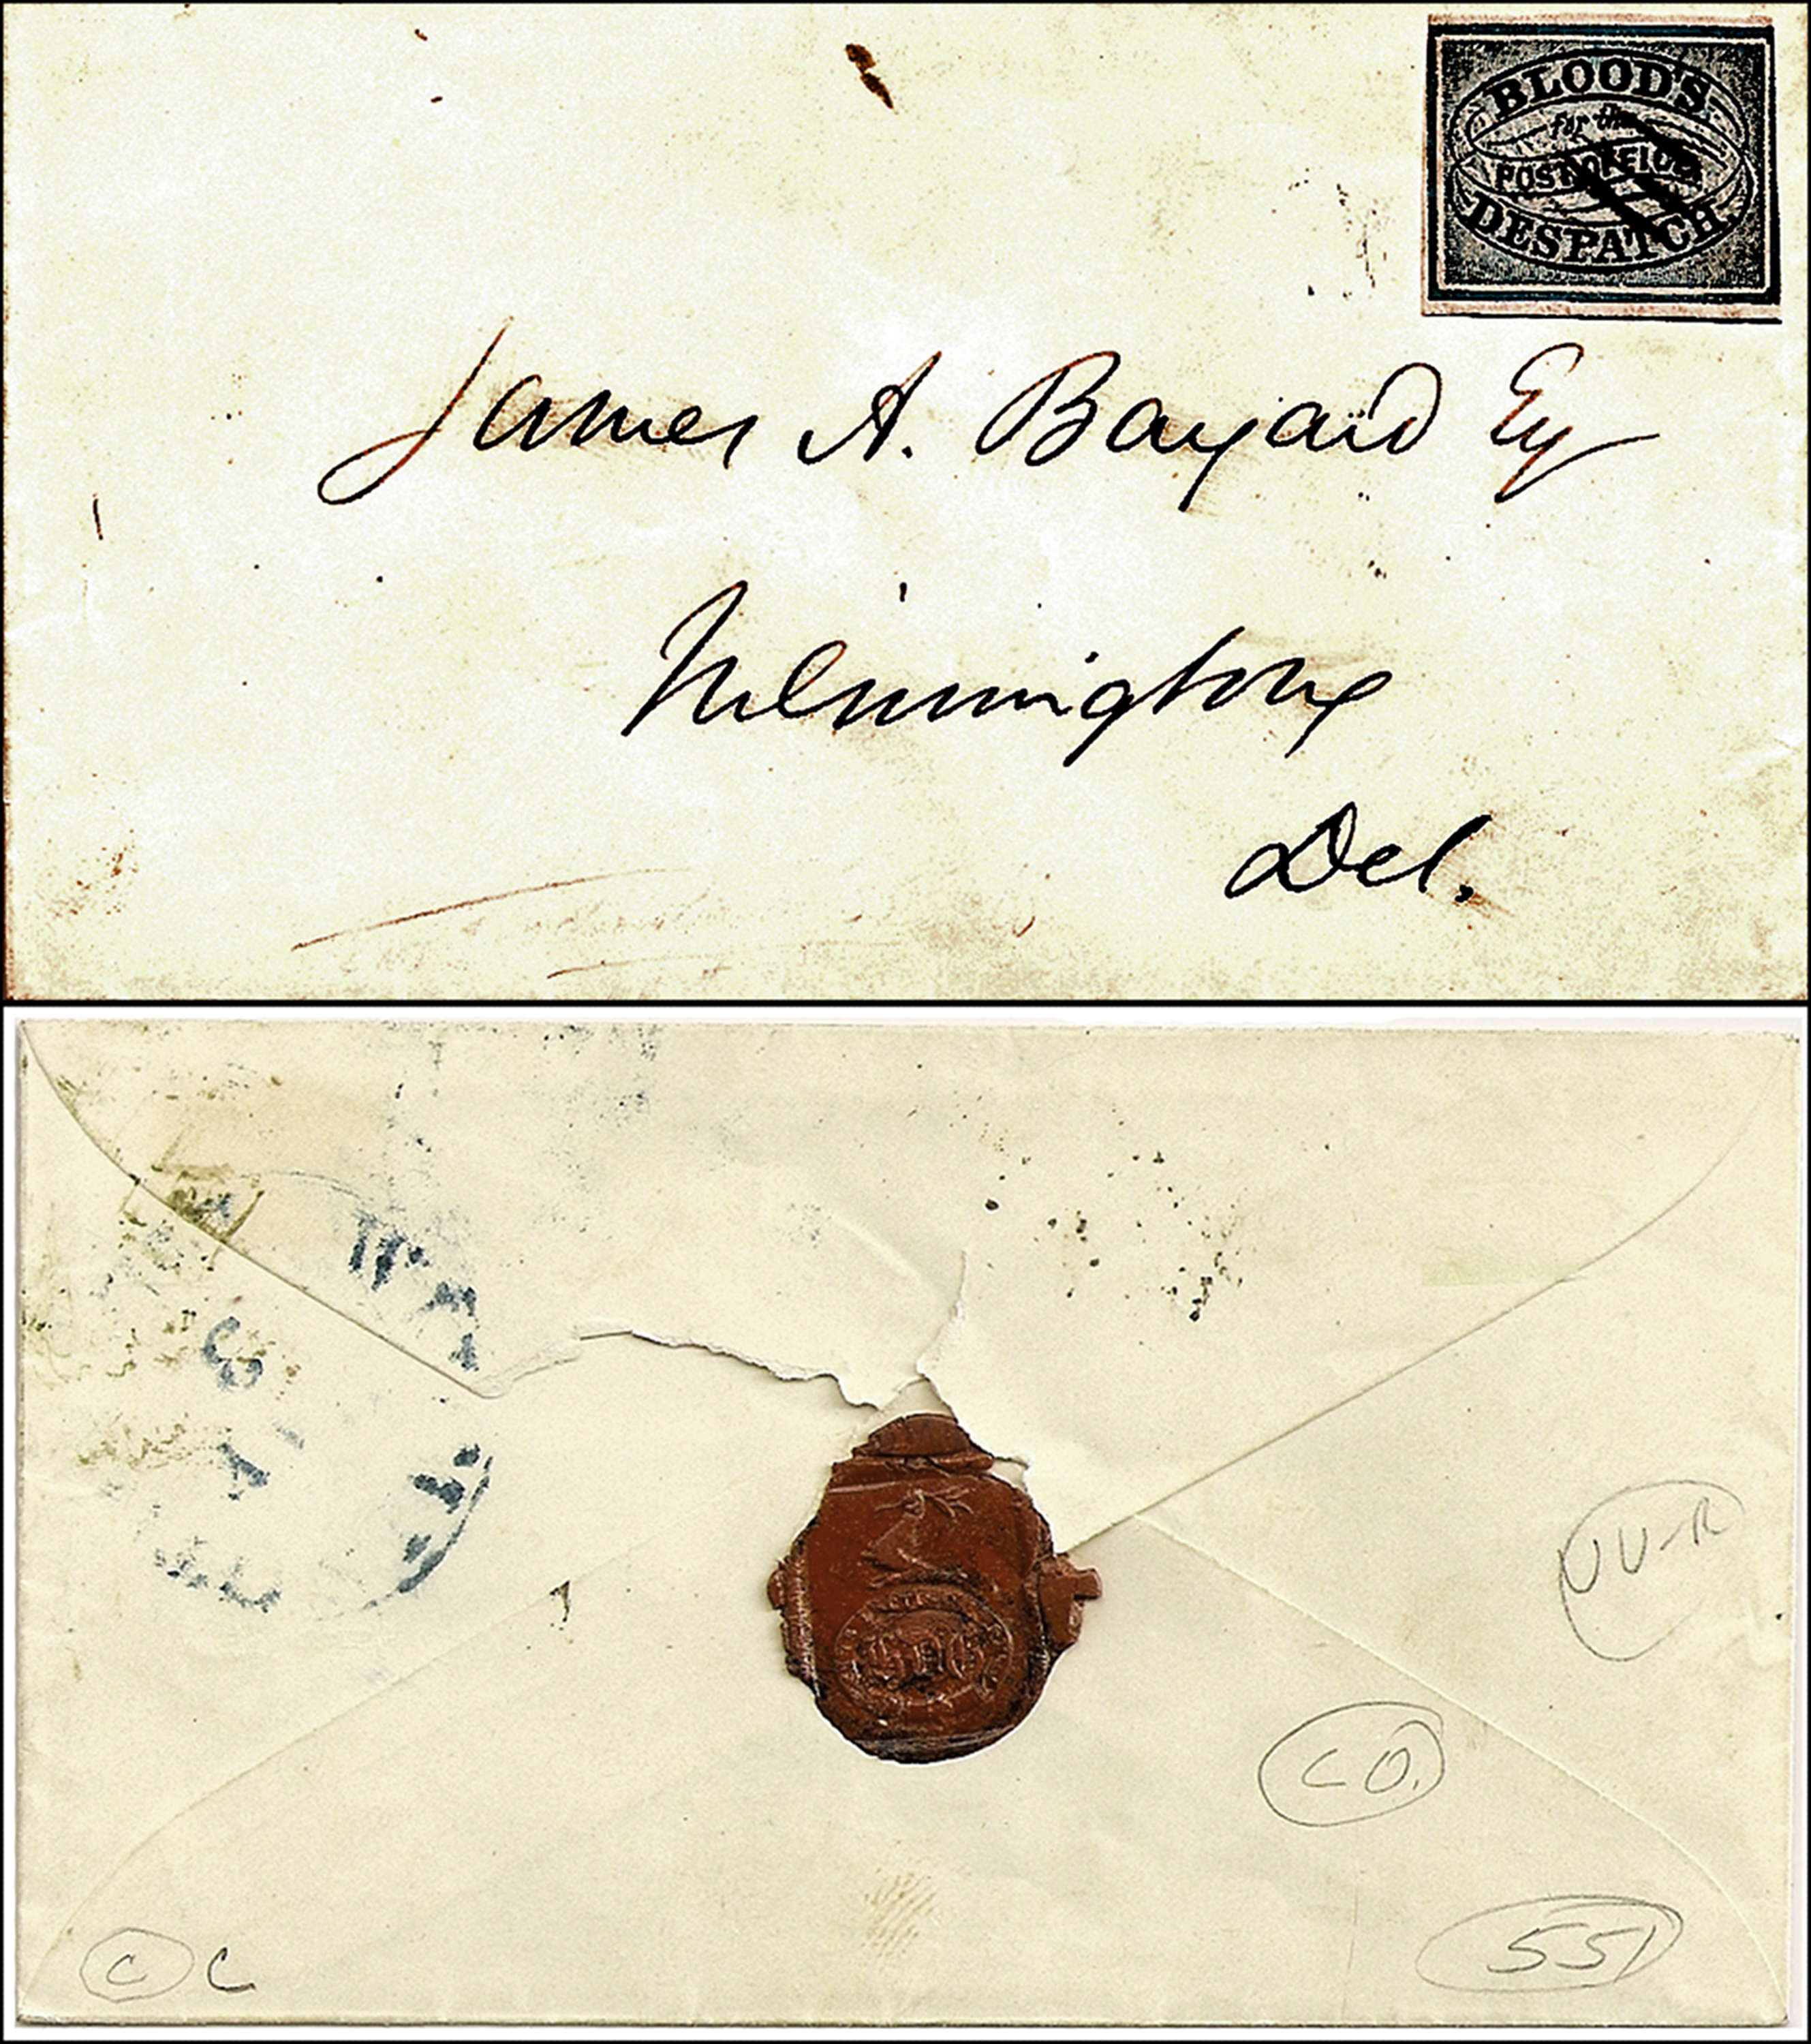 BLOOD'S
for the
POST OFFICE
DESPATCH
James A. Bayard Esq
Wilmington
Del.
UU-R
CO.
C C
551